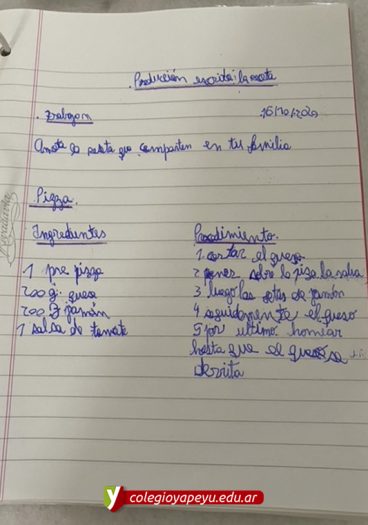 Producción escrita: la receta
Trabajo
16/10/2020
Anota la receta que comparten en tu familia
Pizza
Ingredientes
1 pre pizza
200 g. queso
200 g jamón
1 salsa de tomate
Procedimiento
1 cortar el queso
2 poner sobre la pizza la salsa
3 luego las fetas de jamón
4 seguidamente el queso
5 por ultimo hornear
hasta que el queso se
derrita
colegioyapeyu.edu.ar